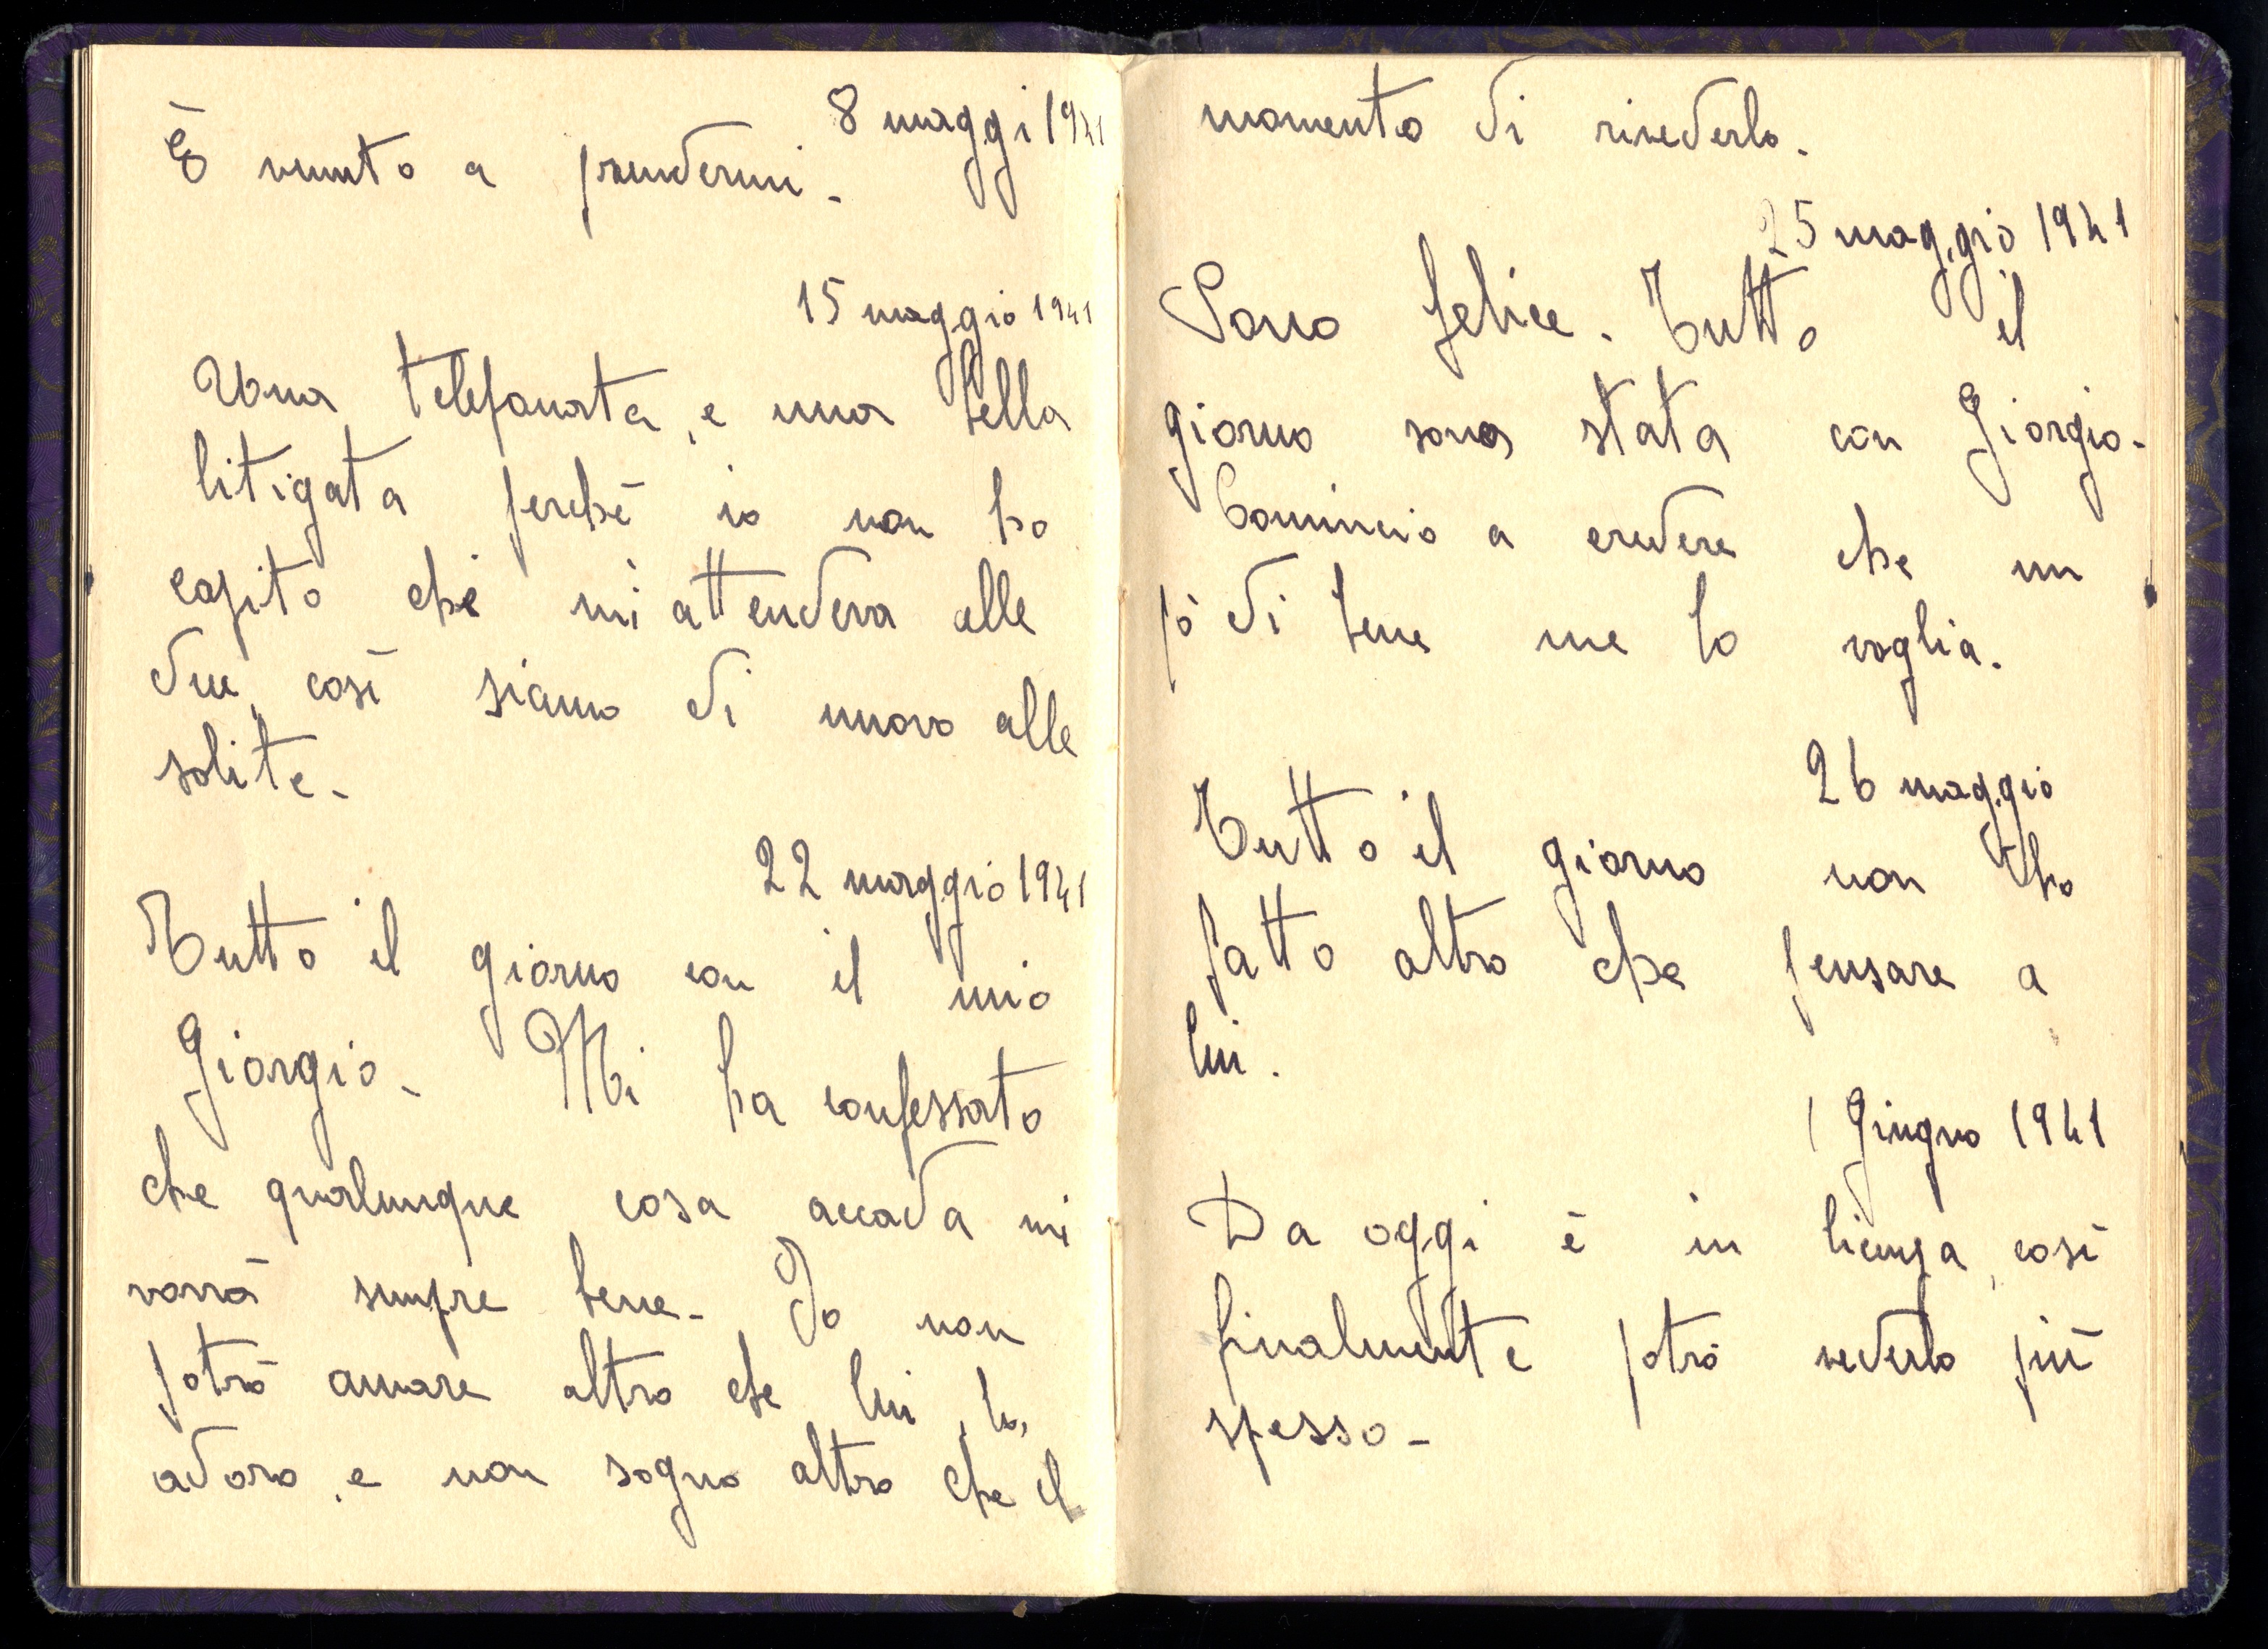 8 maggi 1941
È venuto a prendermi.
15 maggio 1941
Una telefonata, e una bella
litigata perché io non ho
capito che mi attendeva alle
due, così siamo di nuovo alle
solite.
22 maggio 1941
Tutto il giorno con il mio
Giorgio. Mi ha confessato
che qualunque cosa accada mi
vorrà sempre bene. Io non
potrò amare altro che lui, lo
adoro, e non sogno altro che il
momento di rivederlo.
25 maggio 1941
Sono felice. Tutto il
giorno sono stata con Giorgio.
Comincio a credere che un
pò di bene me lo voglia.
26 maggio
Tutto il giorno non ho
fatto altro che pensare a
lui.
1 Giugno 1941
Da oggi è in licenza, così
finalmente potrò vederlo più
spesso.